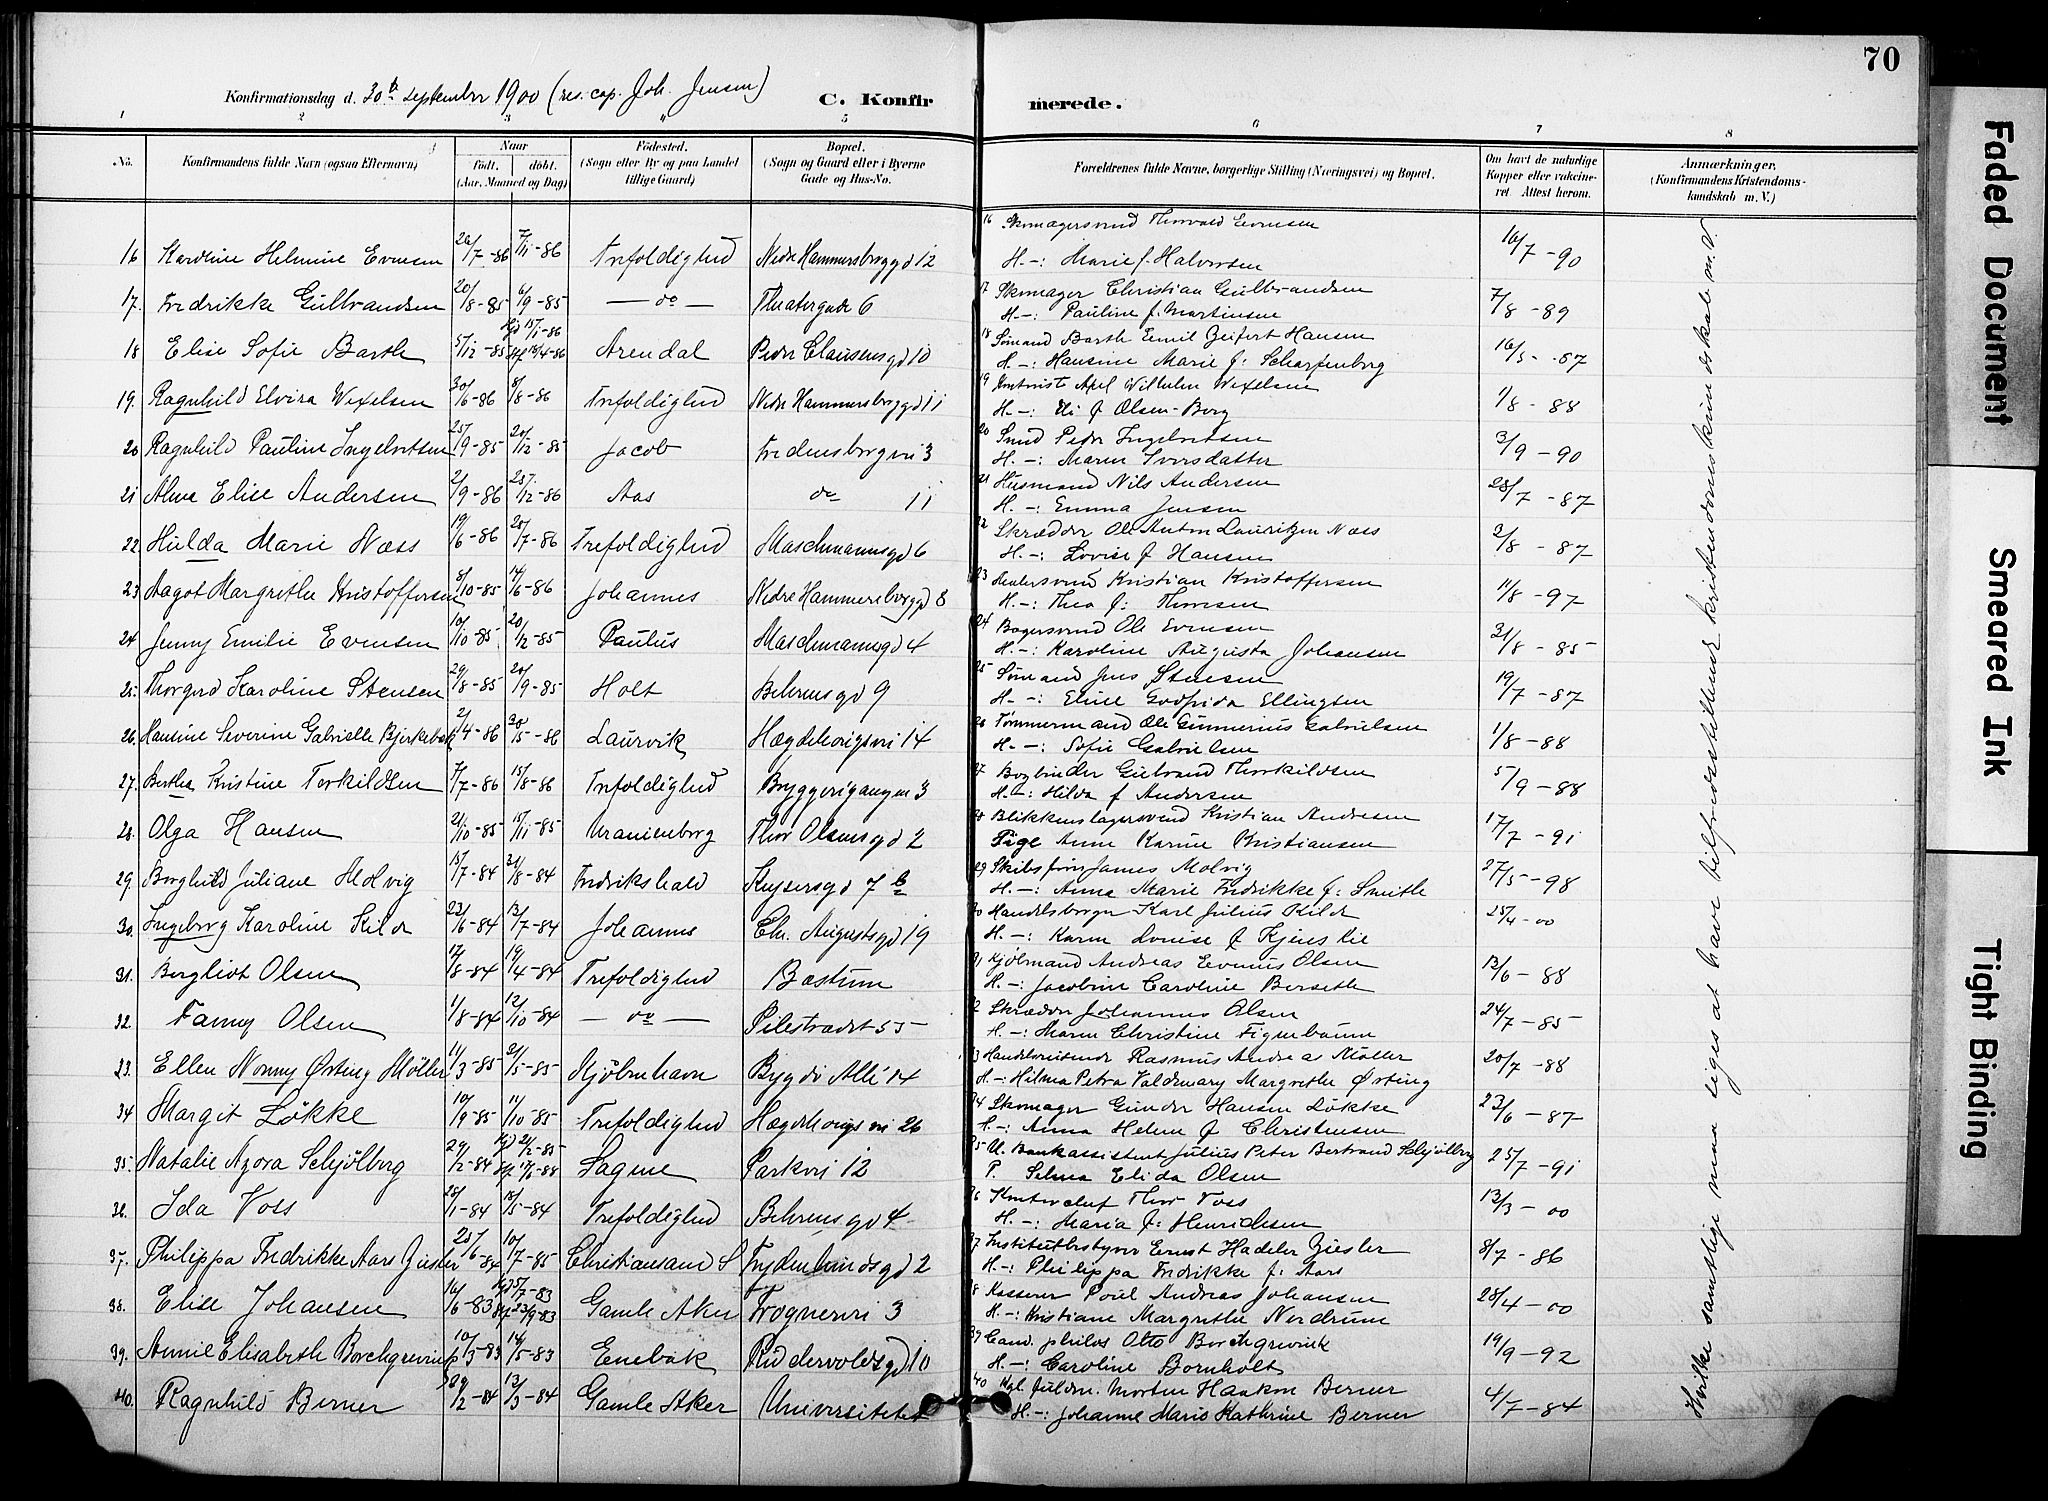 70
Konfirmationsdag d. 30th september 1900 (res. cap. Joh. Jensen)
C. Konfirmerede.
1 2 3 4 5 6 7 8
No. Konfirmandens fulde Navn (ogsaa Efternavn) Naar født. døbt. (Aar, Maaned og Dag) Fødested. (Sogn eller By og paa Landet tillige Gaard) Bopæl. (Sogn og Gaard eller i Byerne Gade og Hus-No. Forældrenes fulde Navne, borgerlige Stilling (Næringsvei) og Bopæl. Om havt de naturlige Kopper eller vakcineret Attest herom. Anmærkninger, (Konfirmandens Kristendomskundskab m. V.)
16 Skomagersvend Thorvald Evensen
16 Karoline Helmine Evensen 26/7-86 7/11-86 Trefoldighed Nedre Hammersborggd 12 H.-: Marie f. Halvorsen 16/7-90
17 Skomager Christian Gulbrandsen
17. Fredrikke Gulbrandsen 20/8-85 6/9-85 — do — Theatergade 6 H.-: Pauline f. Martinsen 7/8-89
18 Sømand Barth Emil Zeifert Hansen
18 Elise Sofie Barth 5/12-85 Hjd 15/1-86 16/4-86 Arendal Peder Clausensgd 10 H.-: Hansine Marie f: Scharfenberg 16/5-87
19 Kontorist Axel Wilhelm Wexelsen
19. Ragnhild Elvira Wexelsen 30/6-86 8/8-86 Trefoldighed Nedre Hammersborggd 11 H.-: f Olsen-Borg 1/8-88
20 Smed Peder Ingebretsen
20 Ragnhild Pauline Ingebretsen 25/9-85 20/12-85 Jacob Fredensborgvei 3 H.-: Maren Iversdatter 3/9-90
21 Husmand Nils Andersen
21 Alma Elise Andersen 2/9-86 25/12-86 Aas do 11 H.-: Emma Jensen 28/7-87
22 Skrædder Ole Anton Lauritzen Næss
22 Hulda Marie Næss 19/6-86 25/7-86 Trefoldighed Maschmannsgd 6 H.-: Lovise f Hansen 2/8-87
23 Kristian Kristoffersen
23 Aagot Margrethe Kristoffersen 8/10-85 14/6-86 Johannes Nedre Hammersborggd 8 H.-: Thea f: Thoresen 11/8-97
24 Bagersvend Ole Evensen
24 Jenny Emilie Evensen 10/10-85 20/12-85 Paulus Maschmannsgd 4 H.-: Karoline Augusta Johansen 31/8-85
25 Sømand Jens Stensen
25. Thorgerd Karoline Stensen 29/8-85 20/9-85 Holt Behrensgd 9 H.-: Elise Godfrida Ellingsen 19/7-87
26 Tømmermand Ole Gunnerius Gabrielsen
26. Hansine Severine Gabrielle Bjerkebæk 2/4-86 30/5-86 Laurvik Hægdehougsvei 14 H.-: Sofie Gabrielsen 1/8-88
27 Bogbinder Gulbrand Thorkildsen
27. Berthea Kristine Torkildsen 7/7-86 15/8-86 Trefoldighed Bryggerigangen 3 H.-: Hilda f Andersen 5/9-88
28 Blikkenslagersvend Kristian Andresen
28. Olga Hansen 21/10-85 15/11-85 Uranienborg Thor Olsensgd 2 Pige Anne Karine Kristiansen 17/7-91
29 Skibsfører James Molvig
29. Borghild Juliane Molvig 15/7-84 21/8-84 Fredrikshald Keysersgd 7 b H.-: Anna Marie Fredrikke f: Smith 27/5-98
30 Handelsborger Karl Julius Kildr
30. Ingeborg Karoline Kildr 23/6-84 13/7-84 Johannes Chr. Augustsgd 19 H.-: Karen Louise f Kjenslie 25/4-00
31 Kjølmand Andreas Evenius Olsen
31. Bergliot Olsen 17/8-84 19/4-84 Trefoldighed Bastum H.-: Jacobine Caroline Berseth 13/6-88
32 Skrædder Johannes Olsen
32. Fanny Olsen 1/8-84 12/10-84 — do — Pilestrædet 55 H.-: Maren Christine Figenbaum 24/7-85
33 Handelsreisende Rasmus Andrea Møller
33. Ellen Nonny Ørting Møller 11/3-85 21/5-85 Kjøbenhavn Bygdø Allé 14 H.-: Hilma Petra Valdemary Margrethe Ørting 20/7-88
34 Skomager Gunder Hansen Løkke
34 Margit Løkke 10/9-85 11/10-85 Trefoldighed Hægdehougsvei 26 H.-: Anna Helene f Christensen 23/6-87
35 U. Bankassistent Julius Peter Bertrand Schjølberg
35. Natalie Azora Schjølberg 29/2-84 Hjd 2/2-85 17/6-88 Sagene Parkvei 12 P. Selma Elida Olsen 25/7-91
36 Kontorchef Thor Voss
36. Ida Voss 25/1-84 18/5-84 Trefoldighed Behrensgd 4 H.-: Maria f: Henrichsen 13/3-00
37 Institutbestyrer Ernst Hadeler Ziesler
37. Philippa Fredrikke Aars Ziesler 25/6-84 10/7-85 Christiansand S Frydenlundsgd 2 H.-: Philippa Fredrikke f: Aars 8/7-86
38 Kasserer Poul Andreas Johansen
38. Elise Johansen 16/6-83 Hjd 5/7-83 23/9-83 Gamle Aker Frognervei 3 H.-: Kristiane Margrethe Nordrum 28/4-00
39 Cand. philos Otto Borchgrevink
39. Annie Elisabeth Borchgrevink 10/3-83 14/5-83 Enebak Riddervoldsgd 10 H.-: Caroline Bornholt 19/9-92
40 Kgl. fuldm. Morten Haakon Berner
40. Ragnhild Berner 29/2-84 13/3-84 Gamle Aker Universitetet H.-: Johanne Marie Kathrine Berner 4/7-84
Hvilke samtlige maa siges at have tilfredsstillende kristendomskundskab m. v.
Faded Document
Smeared Ink
Tight Binding